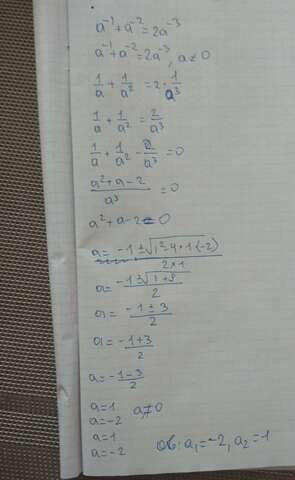 a⁻¹+a⁻²=2a⁻³
a⁻¹+a⁻²=2a⁻³, a≠0
1/a + 1/a² = 2·1/a³
1/a + 1/a² = 2/a³
1/a + 1/a² - 2/a³ = 0
(a²+a-2)/a³ = 0
a²+a-2=0
a = (-1±√(1²-4·1·(-2)))/(2×1)
a = (-1±√(1+8))/2
a = (-1±3)/2
a = (-1+3)/2
a = (-1-3)/2
a=1 a≠0
a=-2
a=1
a=-2 a₁=-2, a₂=1